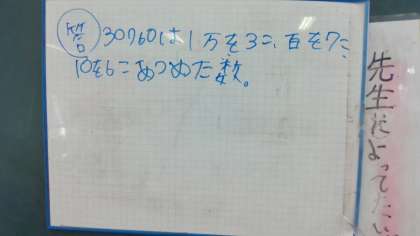 答 30760は1万を3こ、百を7こ
10を6こあつめた数。
先生によってたい